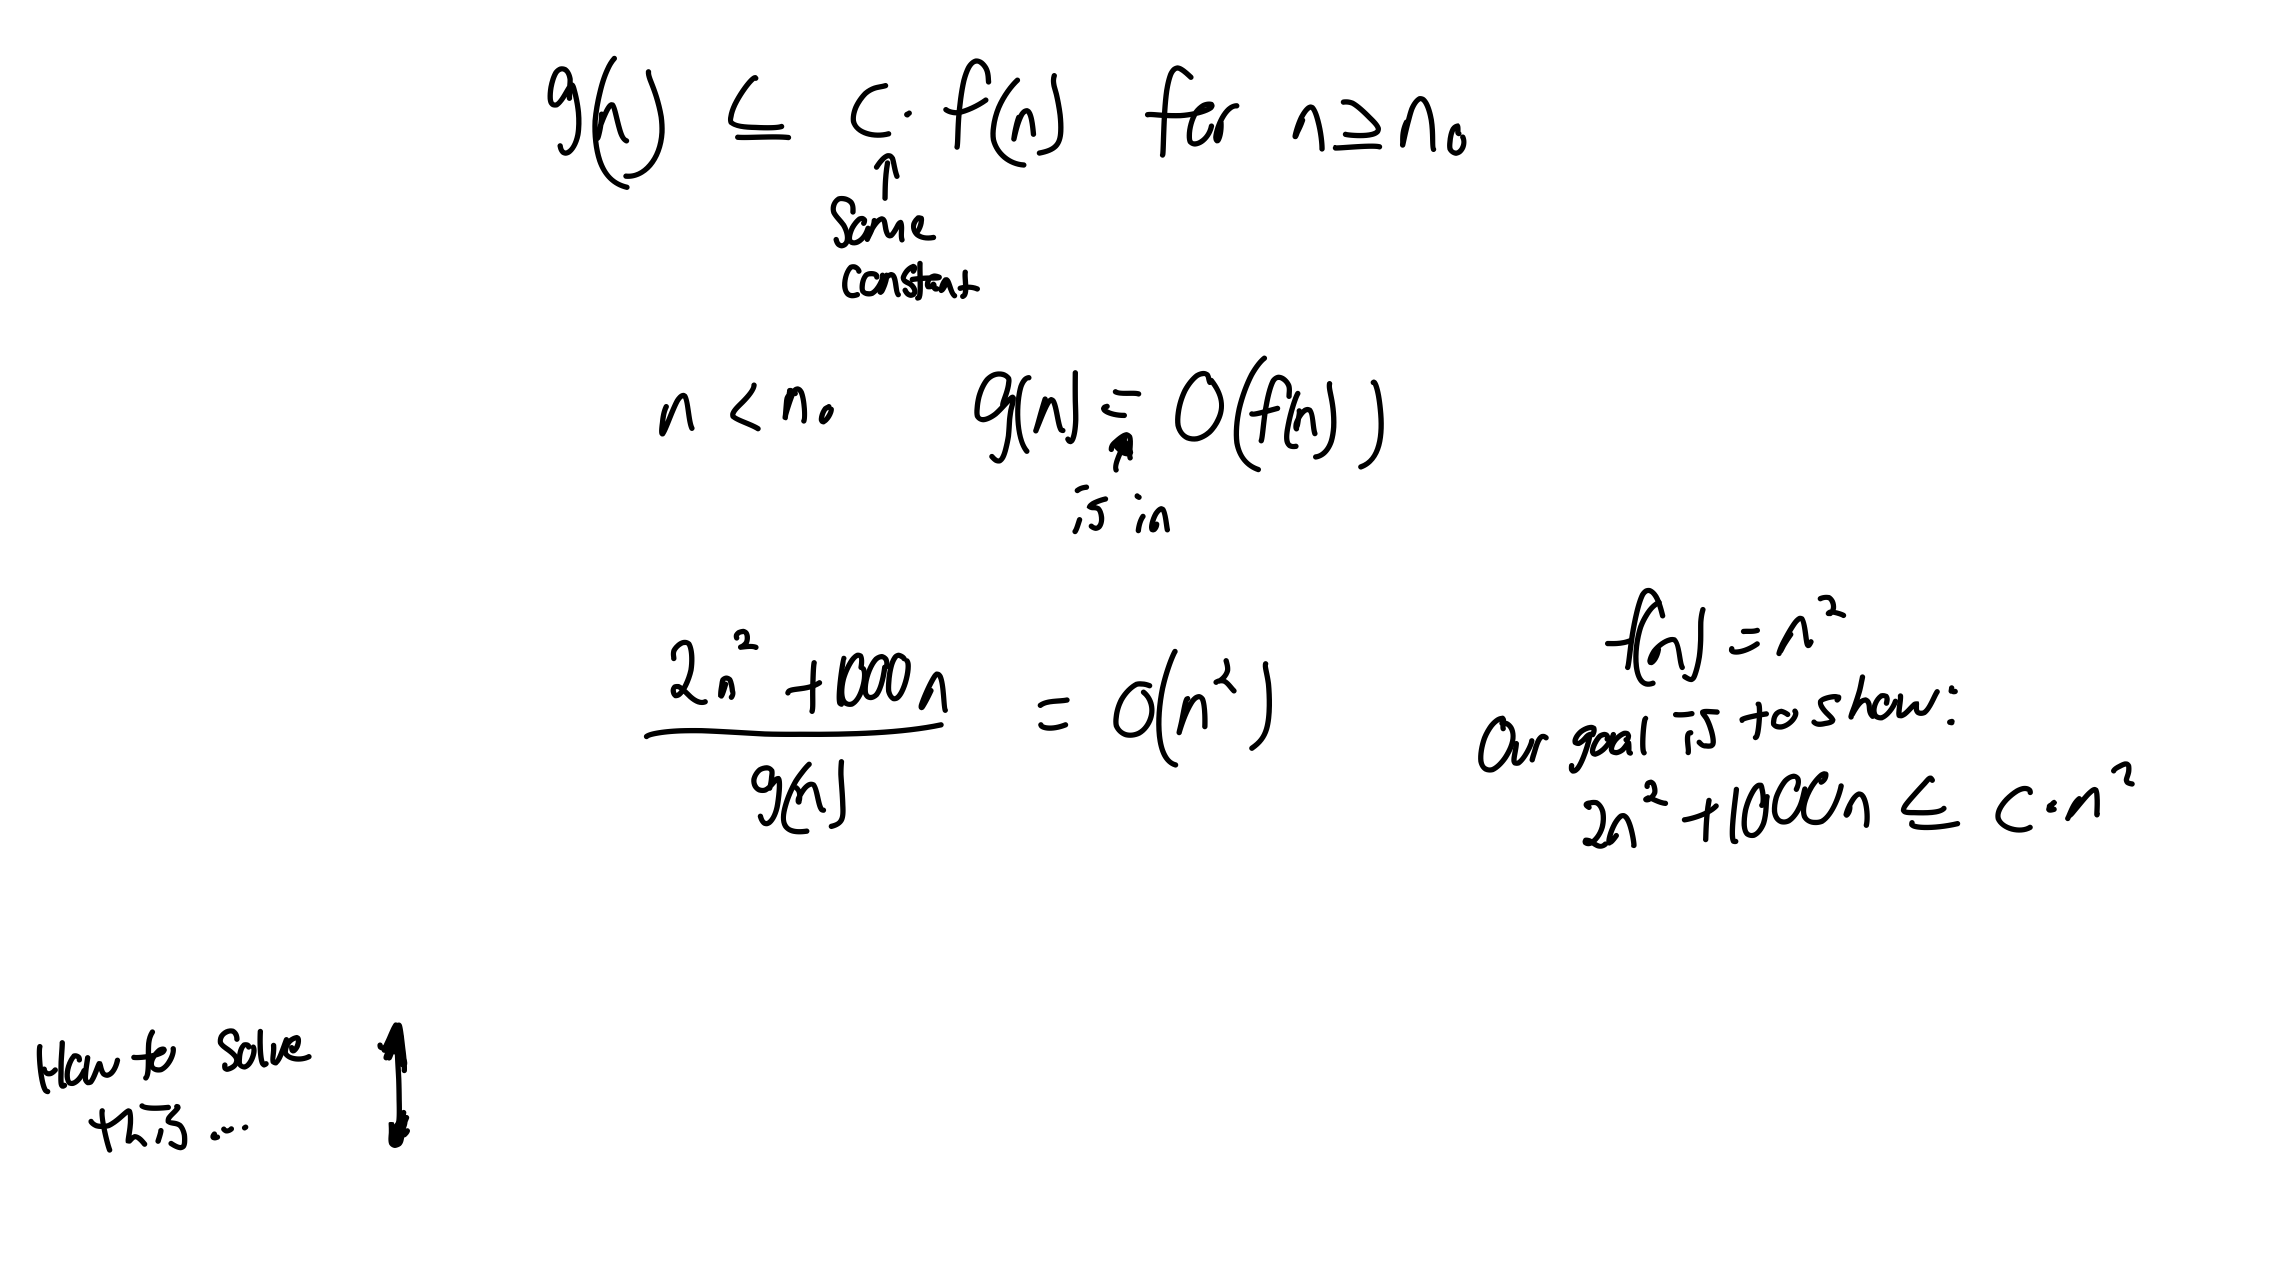 g(n) ≤ c · f(n) for n ≥ n₀
↑
Some
constant
n < n₀ g(n) = O(f(n))
↑
is in
f(n) = n²
2n² + 1000n = O(n²)
g(n)
Our goal is to show:
2n² + 1000n ≤ c · n²
How to solve
this ...